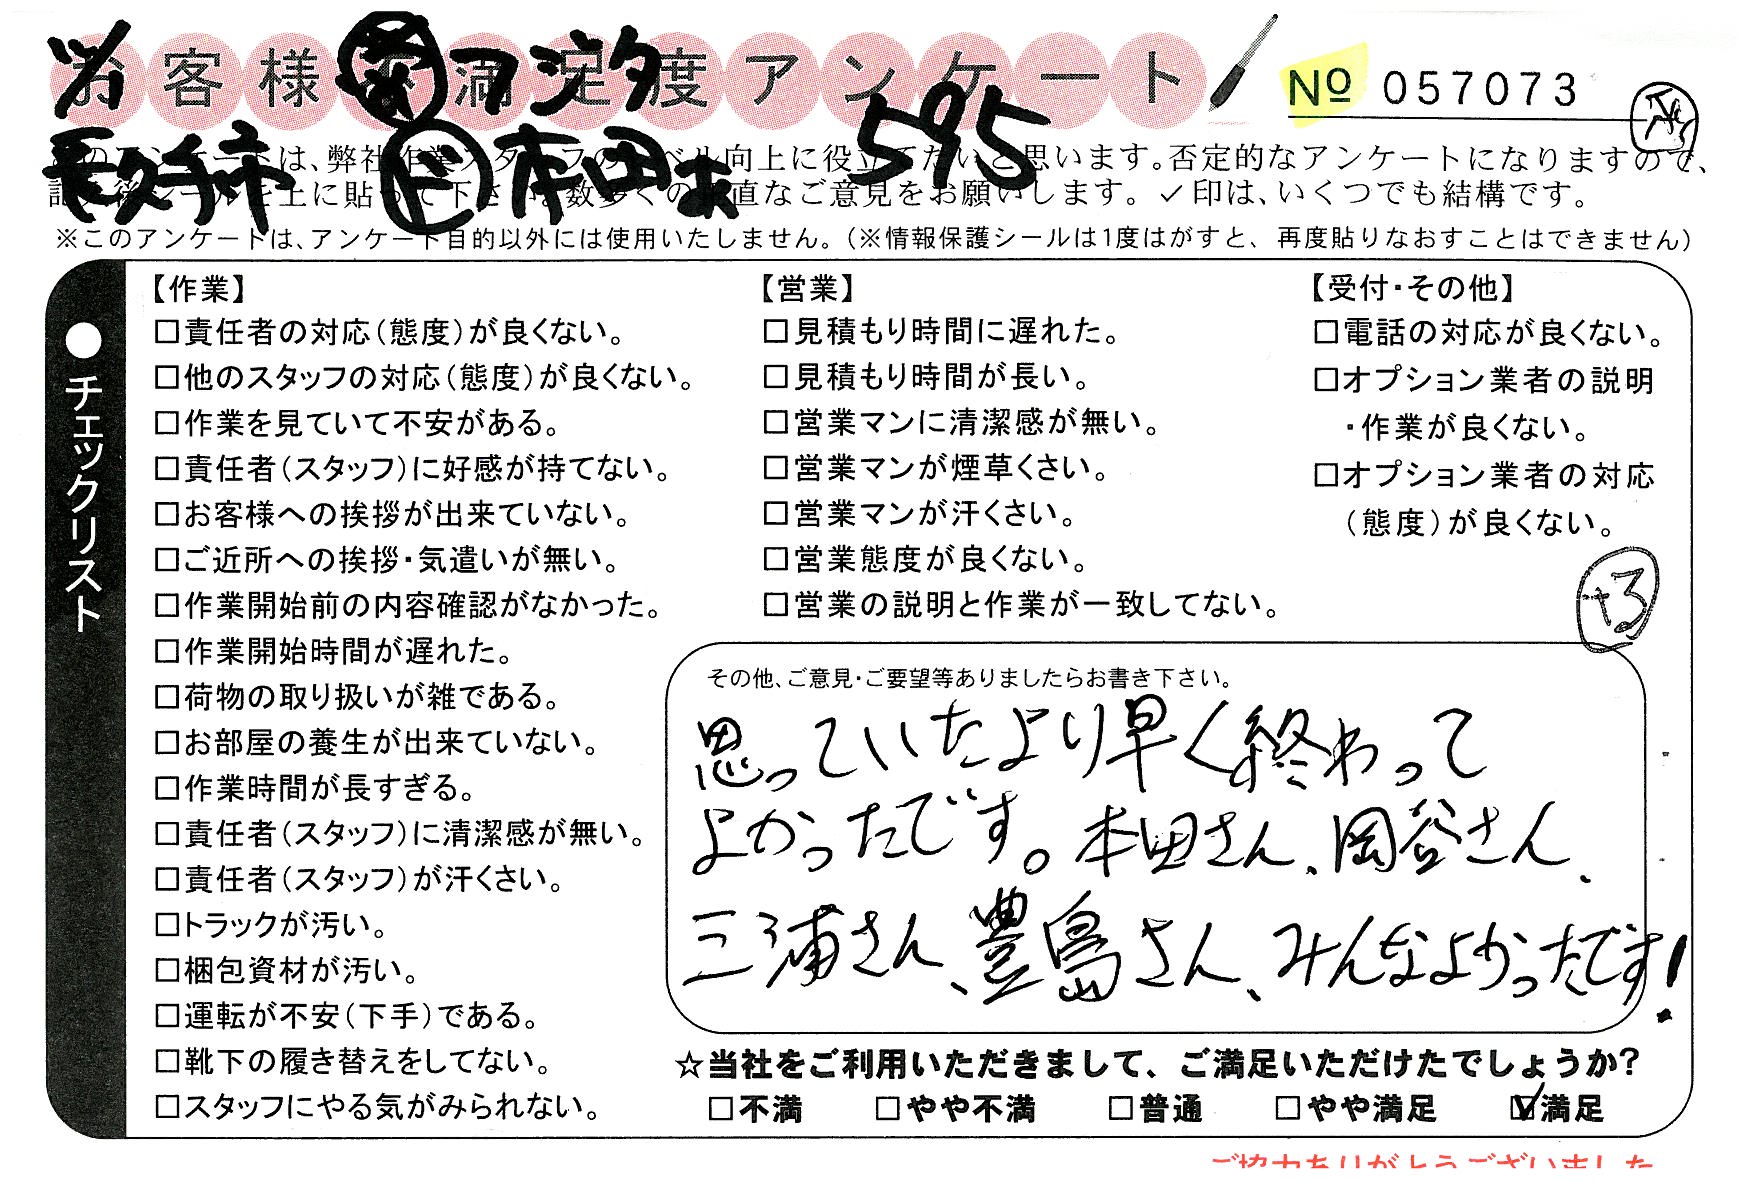 お客様不満足度アンケート
No 057073
フジタ
長久手市
本田
595
このアンケートは、弊社作業スタッフのレベル向上に役立てたいと思います。否定的なアンケートになりますので、
記入後シールを上に貼って下さい。数多くの正直なご意見をお願いします。✓印は、いくつでも結構です。
※このアンケートは、アンケート目的以外には使用いたしません。(※情報保護シールは1度はがすと、再度貼りなおすことはできません)
●チェックリスト
【作業】
□責任者の対応(態度)が良くない。
□他のスタッフの対応(態度)が良くない。
□作業を見ていて不安がある。
□責任者(スタッフ)に好感が持てない。
□お客様への挨拶が出来ていない。
□ご近所への挨拶・気遣いが無い。
□作業開始前の内容確認がなかった。
□作業開始時間が遅れた。
□荷物の取り扱いが雑である。
□お部屋の養生が出来ていない。
□作業時間が長すぎる。
□責任者(スタッフ)に清潔感が無い。
□責任者(スタッフ)が汗くさい。
□トラックが汚い。
□梱包資材が汚い。
□運転が不安(下手)である。
□靴下の履き替えをしてない。
□スタッフにやる気がみられない。
【営業】
□見積もり時間に遅れた。
□見積もり時間が長い。
□営業マンに清潔感が無い。
□営業マンが煙草くさい。
□営業マンが汗くさい。
□営業態度が良くない。
□営業の説明と作業が一致してない。
【受付・その他】
□電話の対応が良くない。
□オプション業者の説明
・作業が良くない。
□オプション業者の対応
(態度)が良くない。
その他、ご意見・ご要望等ありましたらお書き下さい。
思っていたより早く終わって
よかったです。本田さん、岡谷さん、
三浦さん、豊島さん、みんなよかったです!
☆当社をご利用いただきまして、ご満足いただけたでしょうか?
□不満 □やや不満 □普通 □やや満足 ☑満足
ご協力ありがとうございました